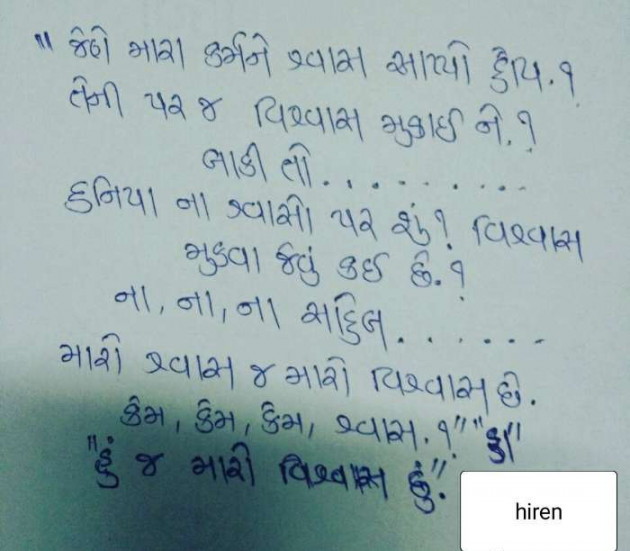 "જેણે મારા કર્મને શ્વાસ આપ્યો હોય.?
તેની પર જ વિશ્વાસ મુકાઈ ને.?
બાકી તો..........
દુનિયા ના શ્વાસો પર શું? વિશ્વાસ
મુકવા જેવું કઈ છે.?
ના, ના, ના સાહિલ.......
મારો શ્વાસ જ મારો વિશ્વાસ છે.
કેમ, કેમ, કેમ, શ્વાસ.?" "હા"
"હું જ મારો વિશ્વાસ છું."
hiren